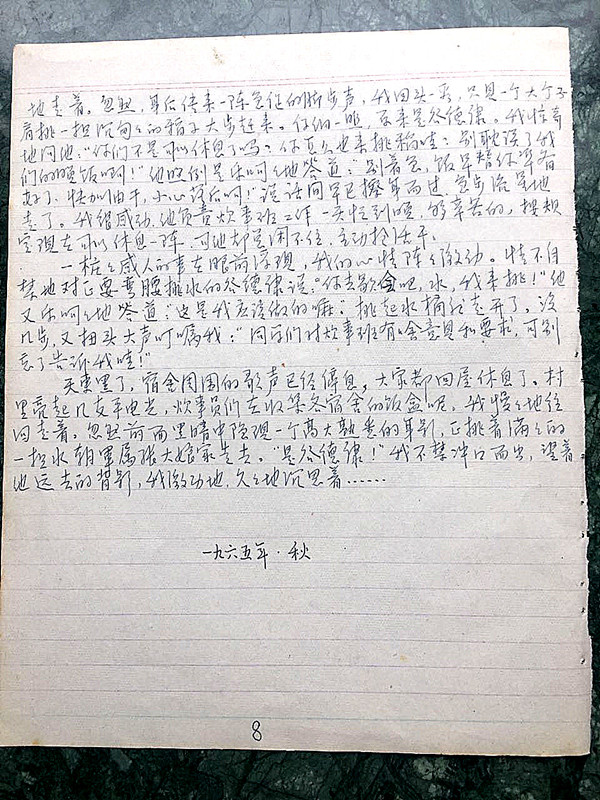 地走着。忽然，身后传来一阵急促的脚步声，我回头一看，只见一个大个子
肩挑一担沉甸々的稻子大步赶来。仔细一瞧，原来是谷德律。我惊奇
地问他："你们不是可以休息了吗？你怎么也来挑稻哇？别耽误了我
们的晚饭啊！"他呢倒是乐呵々地答道："别着急，饭早替你准备
好了。快加油干，小心落后啊！"说话间早已擦肩而过，急匆匆地
走了。我很感动，他负责炊事班工作一天忙到晚，够辛苦的，按规
定现在可以休息一阵，可他却总闲不住，主动抢活干。
一桩々感人的事在眼前浮现，我的心情阵々激动。情不自
禁地对正要弯腰挑水的谷德律说："你去歇会吧，水，我来挑！"他
又乐呵々地答道："这是我应该做的嘛。"挑起水桶就走开了。没
几步，又扭头大声叮嘱我："同学们对炊事班有啥意见和要求，可别
忘了告诉我哇！"
天更黑了，宿舍周围的歌声已经停息。大家都回屋休息了。村
里亮起几支手电光，炊事员们在收集各宿舍的饭盒呢。我慢々地往
回走着。忽然前面黑暗中隐现一个高大熟悉的身影，正挑着满々的
一担水朝军属张大娘家走去。"是谷德律！"我不禁冲口而出，望着
他远去的背影，我激动地，久々地沉思着……
一九六五年·秋
8